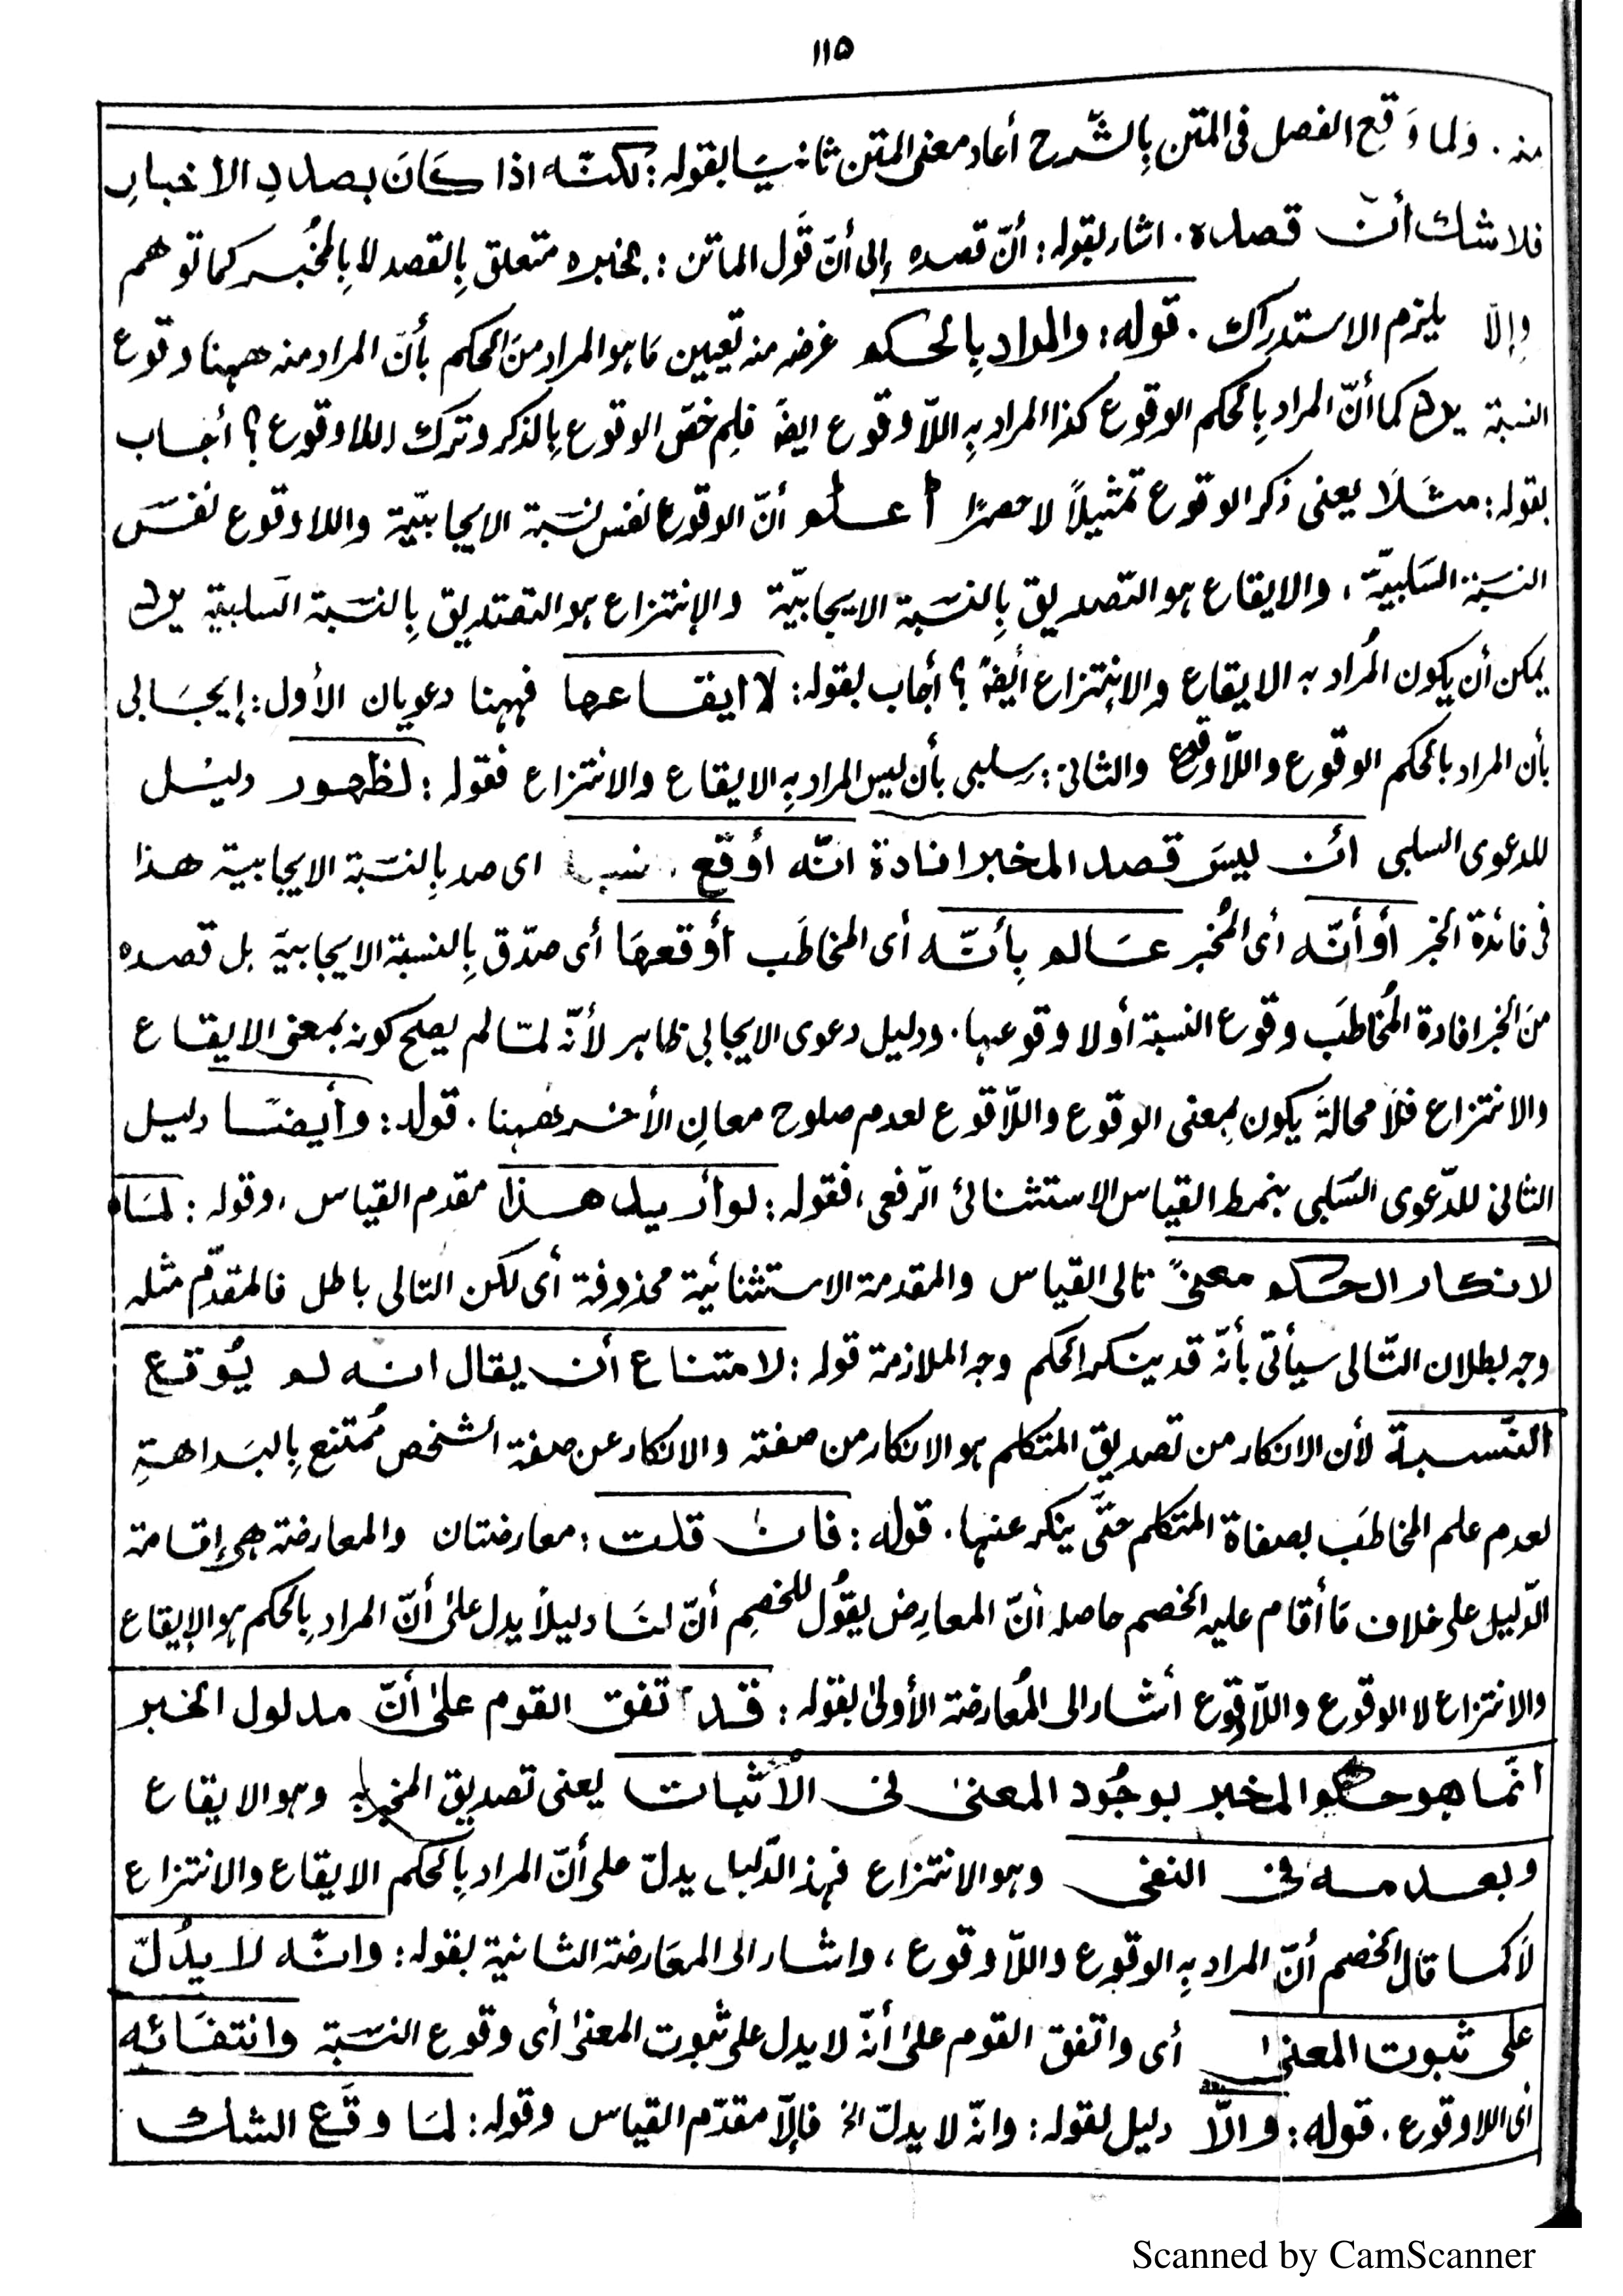 ١١٥
منه . ولما وَقع الفصل فى المتن بِالشَّرح أعاد معنى المتن ثانيًا بقوله : لكنّه اذا كَانَ بصددِ الأخبارِ
فلاشك أنّ قصده . اشار بقوله : أنّ قصده إلى أنّ قَول الماتن : بخبره متعلق بِالقصد لا بِالمُخبر كما توهم
وإلاّ يلزم الاستدراك . قوله : والمراد بِالحكم غرضه منه تعيين مَا هو المراد منَ الحكم بأنّ المراد منه ههنا وقوع
النسبة يرد كما أنّ المراد بِالحكم الوقوع كذا المراد بِه اللّا وقوع ايضًا فلِم خصّ الوقوع بِالذكر وترك اللا وقوع ؟ أجاب
بقوله : مثلاً يعنى ذكر الوقوع تمثيلاً لا حصرًا اعلم أنّ الوقوع نفس نسَبة الايجابيّة واللاوقوع نفسَ
النسَبة السَلبيّة ، والايقاع هو التّصديق بِالنسَبة الايجابيّة والإنتزاع هو التصديق بِالنسَبة السَلبية يرد
يمكن أن يكون المُراد به الايقاع والإنتزاع أيضًا ؟ أجاب بقوله : لا ايقاعها فههنا دعويان الأول : إيجَابى
بأن المراد بالحكم الوقوع واللّا وقوع والثانى : سلبى بأن ليس المراد بِه الايقاع والانتزاع فقوله : لظهور دليل
للدعوى السلبى ان ليسَ قصد المخبر افادة انّه أوقع اى صد بِالنسَبة الايجابية هذا
فى فائدة الخبر أو أنّه أى المُخبر عَالم بِأنّه أى المخاطَب أوقعهَا أى صدّق بِالنسبة الايجابيَة بل قصده
منَ الخبر افادة المُخاطَب وقوع النسبة أو لا وقوعها . ودليل دعوى الايجابى ظاهر لأنّه لمّا لم يصلح كونه بمعنى الايقاع
والانتزاع فلاَ محالةَ يكون بِمعنى الوقوع واللّاقوع لعدم صلوح معانِ الأخر ههنا . قوله : وأيضًا دليل
الثانى للدّعوى السَلبى بنمط القياس الاستثنائى الرّفعى ، فقوله : لو أريد هذا مقدم القياس ، وقوله : لمَا
لانكار الحكم معنىً تالى القياس والمقدمة الاستثنائية محذوفة أى لكن التالى باطل فالمقدّم مثله
وجه بطلان التّالى سيأتى بأنّه قد ينكر الحكم وجه الملازمة قوله : لامتناع أن يقال انه لم يُوقع
النّسبة لأن الانكار من تصديق المتكلم هو الانكار من صفته والانكار عن صفة الشخص مُمتنع بِالبَداهةِ
لعدم علم المخاطَب بصفاة المتكلم حتَّى ينكر عنها . قوله : فان قلت : معارضتان والمعارضة هى إقامة
الدّليل على خلاف مَا أقام عليه الخصم حاصله أنّ المعارِض يقوُل للخصِم أنّ لنَا دليلاً يدل علىٰ أنّ المراد بِالحكم هو الإيقاع
والانتزاع لا الوقوع واللّا وقوع أشار الى المُعارضة الأولىٰ بقوله : قد اتفق القوم علىٰ أنّ مدلول الخبر
انّما هو حكم المخبر بوجُود المعنىٰ فى الأثبات يعنى تصديق المخبر به وهو الايقاع
وبعدمه فى النفى وهو الانتزاع فهذ الدّليل يدلّ على أنّ المراد بِالحكم الايقاع والانتزاع
لاَ كما قال الخصم أنّ المراد بِه الوقوع واللّا وقوع ، واشار الى المعَارضة الثانية بقوله : وانّه لا يدُلّ
على ثبوت المعنىٰ أى واتفق القوم علىٰ أنّه لا يدل على ثبوت المعنىٰ أى وقوع النسَبة وانتفَائه
أى اللاوقوع . قوله : والّا دليل لقوله : وانّه لا يدلّ الخ فإلّا مقدّم القياس وقوله : لمَا وقَع الشك
Scanned by CamScanner